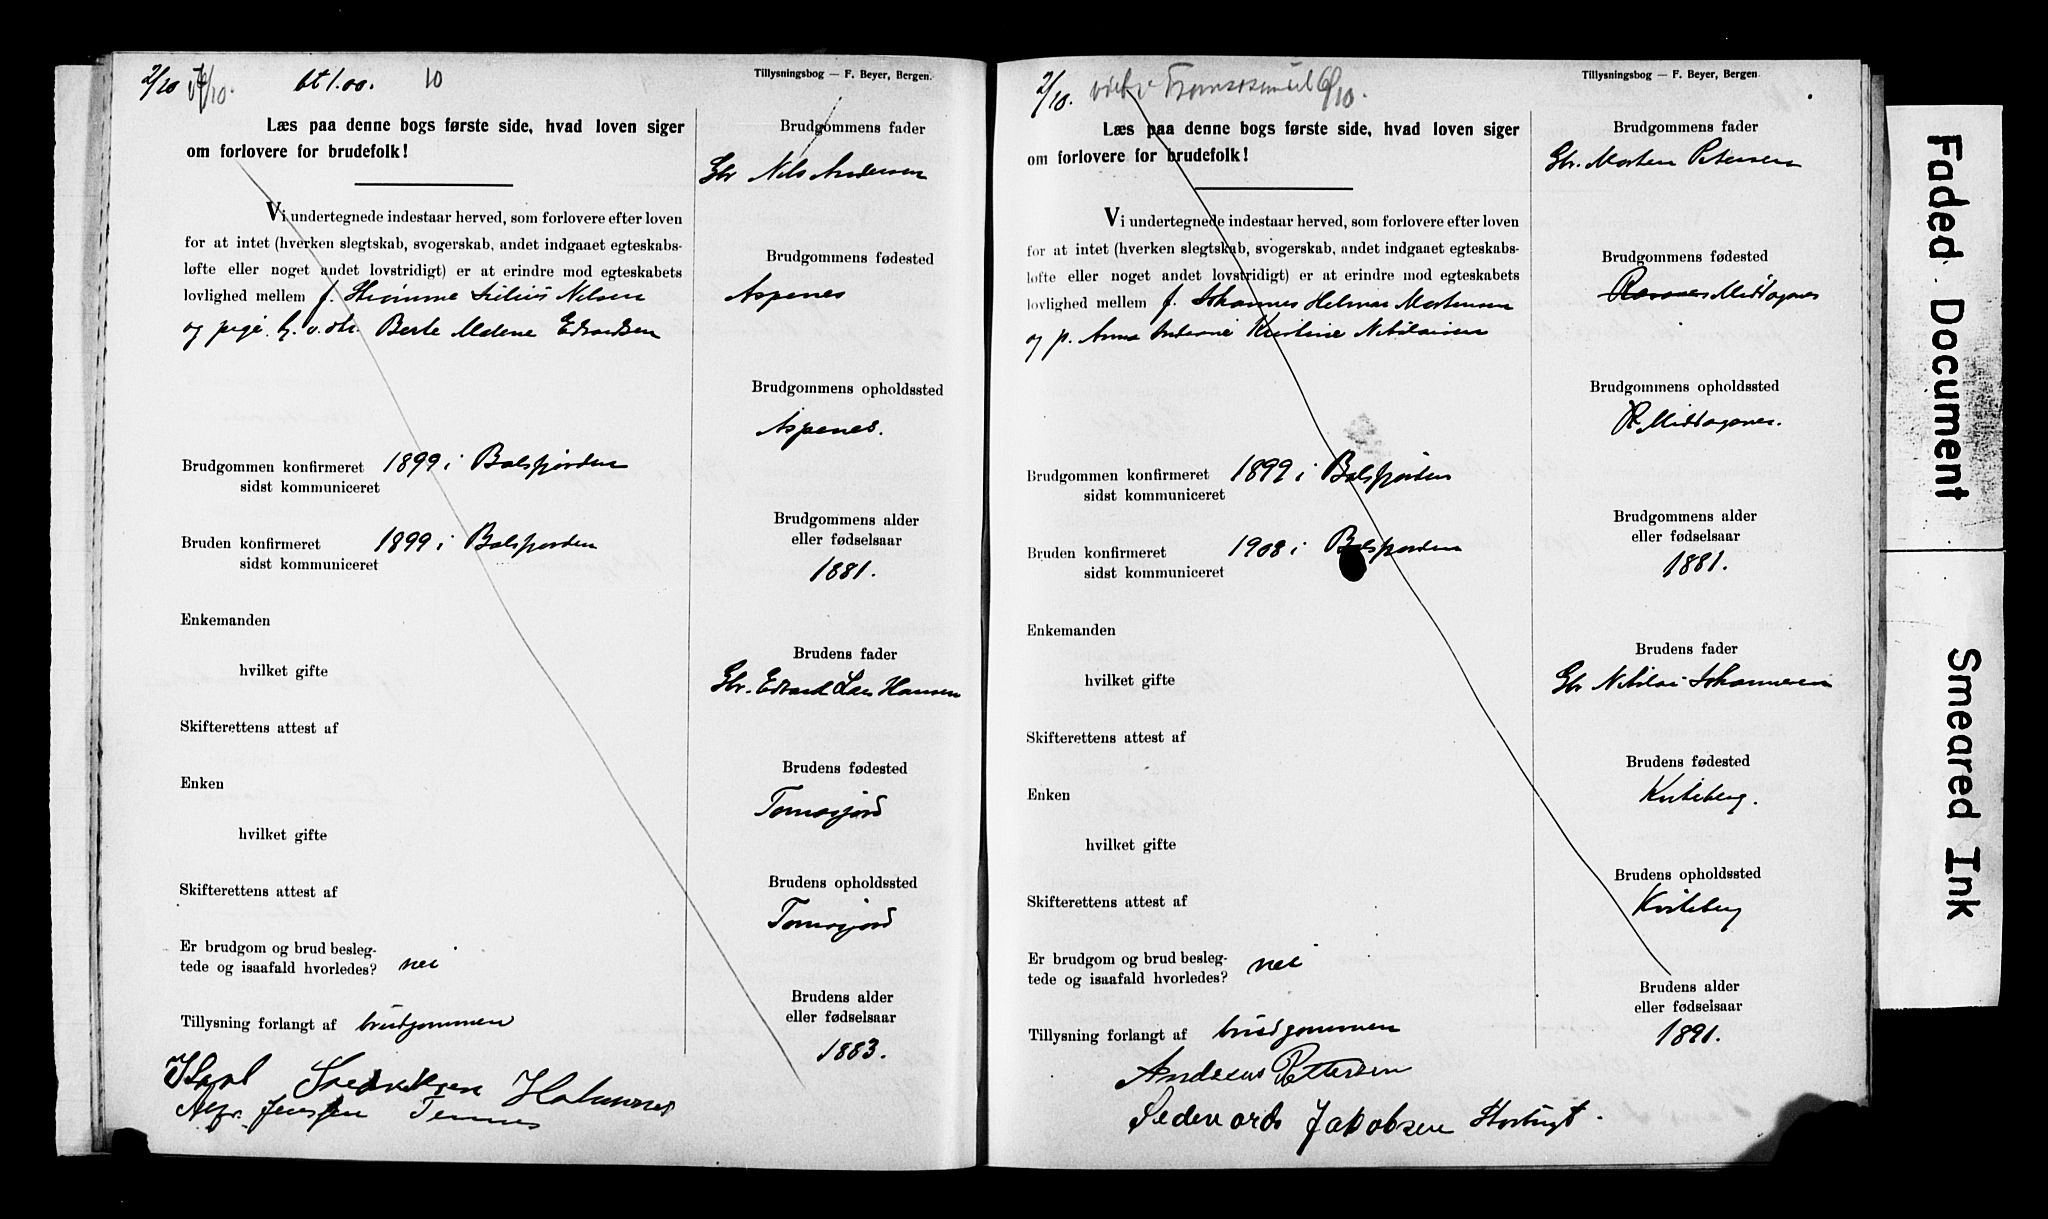 2/10 v 4/10. bt 1.00. 10
Tillysningsbog — F. Beyer, Bergen.
Læs paa denne bogs første side, hvad loven siger
om forlovere for brudefolk!
Vi undertegnede indestaar herved, som forlovere efter loven
for at intet (hverken slegtskab, svogerskab, andet indgaaet egteskabs-
løfte eller noget andet lovstridigt) er at erindre mod egteskabets
lovlighed mellem f. Nilsen
og pige Berte Malene Edvardsen
Brudgommen konfirmeret 1899 i Balsfjorden
sidst kommuniceret
Bruden konfirmeret 1899 i Balsfjorden
sidst kommuniceret
Enkemanden
hvilket gifte
Skifterettens attest af
Enken
hvilket gifte
Skifterettens attest af
Er brudgom og brud besleg-
tede og isaafald hvorledes? nei
Tillysning forlangt af brudgommen
Karl Fredriksen
Alfr. Jensen
Brudgommens fader
Gbr Nils Andersen
Brudgommens fødested
Aspenes
Brudgommens opholdssted
Aspenes.
Brudgommens alder
eller fødselsaar
1881.
Brudens fader
Gbr. Edvard Lars Hansen
Brudens fødested
Tomasjord
Brudens opholdssted
Tomasjord
Brudens alder
eller fødselsaar
1883.
2/10. 6/10.
Tillysningsbog — F. Beyer, Bergen.
Læs paa denne bogs første side, hvad loven siger
om forlovere for brudefolk!
Vi undertegnede indestaar herved, som forlovere efter loven
for at intet (hverken slegtskab, svogerskab, andet indgaaet egteskabs-
løfte eller noget andet lovstridigt) er at erindre mod egteskabets
lovlighed mellem f. Johannes Helmar Mortensen
og p. Anna Kristine Nikolaisen
Brudgommen konfirmeret 1899 i Balsfjorden
sidst kommuniceret
Bruden konfirmeret 1908 i Balsfjorden
sidst kommuniceret
Enkemanden
hvilket gifte
Skifterettens attest af
Enken
hvilket gifte
Skifterettens attest af
Er brudgom og brud besleg-
tede og isaafald hvorledes? nei
Tillysning forlangt af brudgommen
Andreas Pettersen
Jakobsen
Brudgommens fader
Gbr. Morten Petersen
Brudgommens fødested
Middagsnes
Brudgommens opholdssted
Middagsnes.
Brudgommens alder
eller fødselsaar
1881.
Brudens fader
Gbr Nikolai Johannesen
Brudens fødested
Kviteberg.
Brudens opholdssted
Kviteberg
Brudens alder
eller fødselsaar
1891.
Faded Document
Smeared Ink